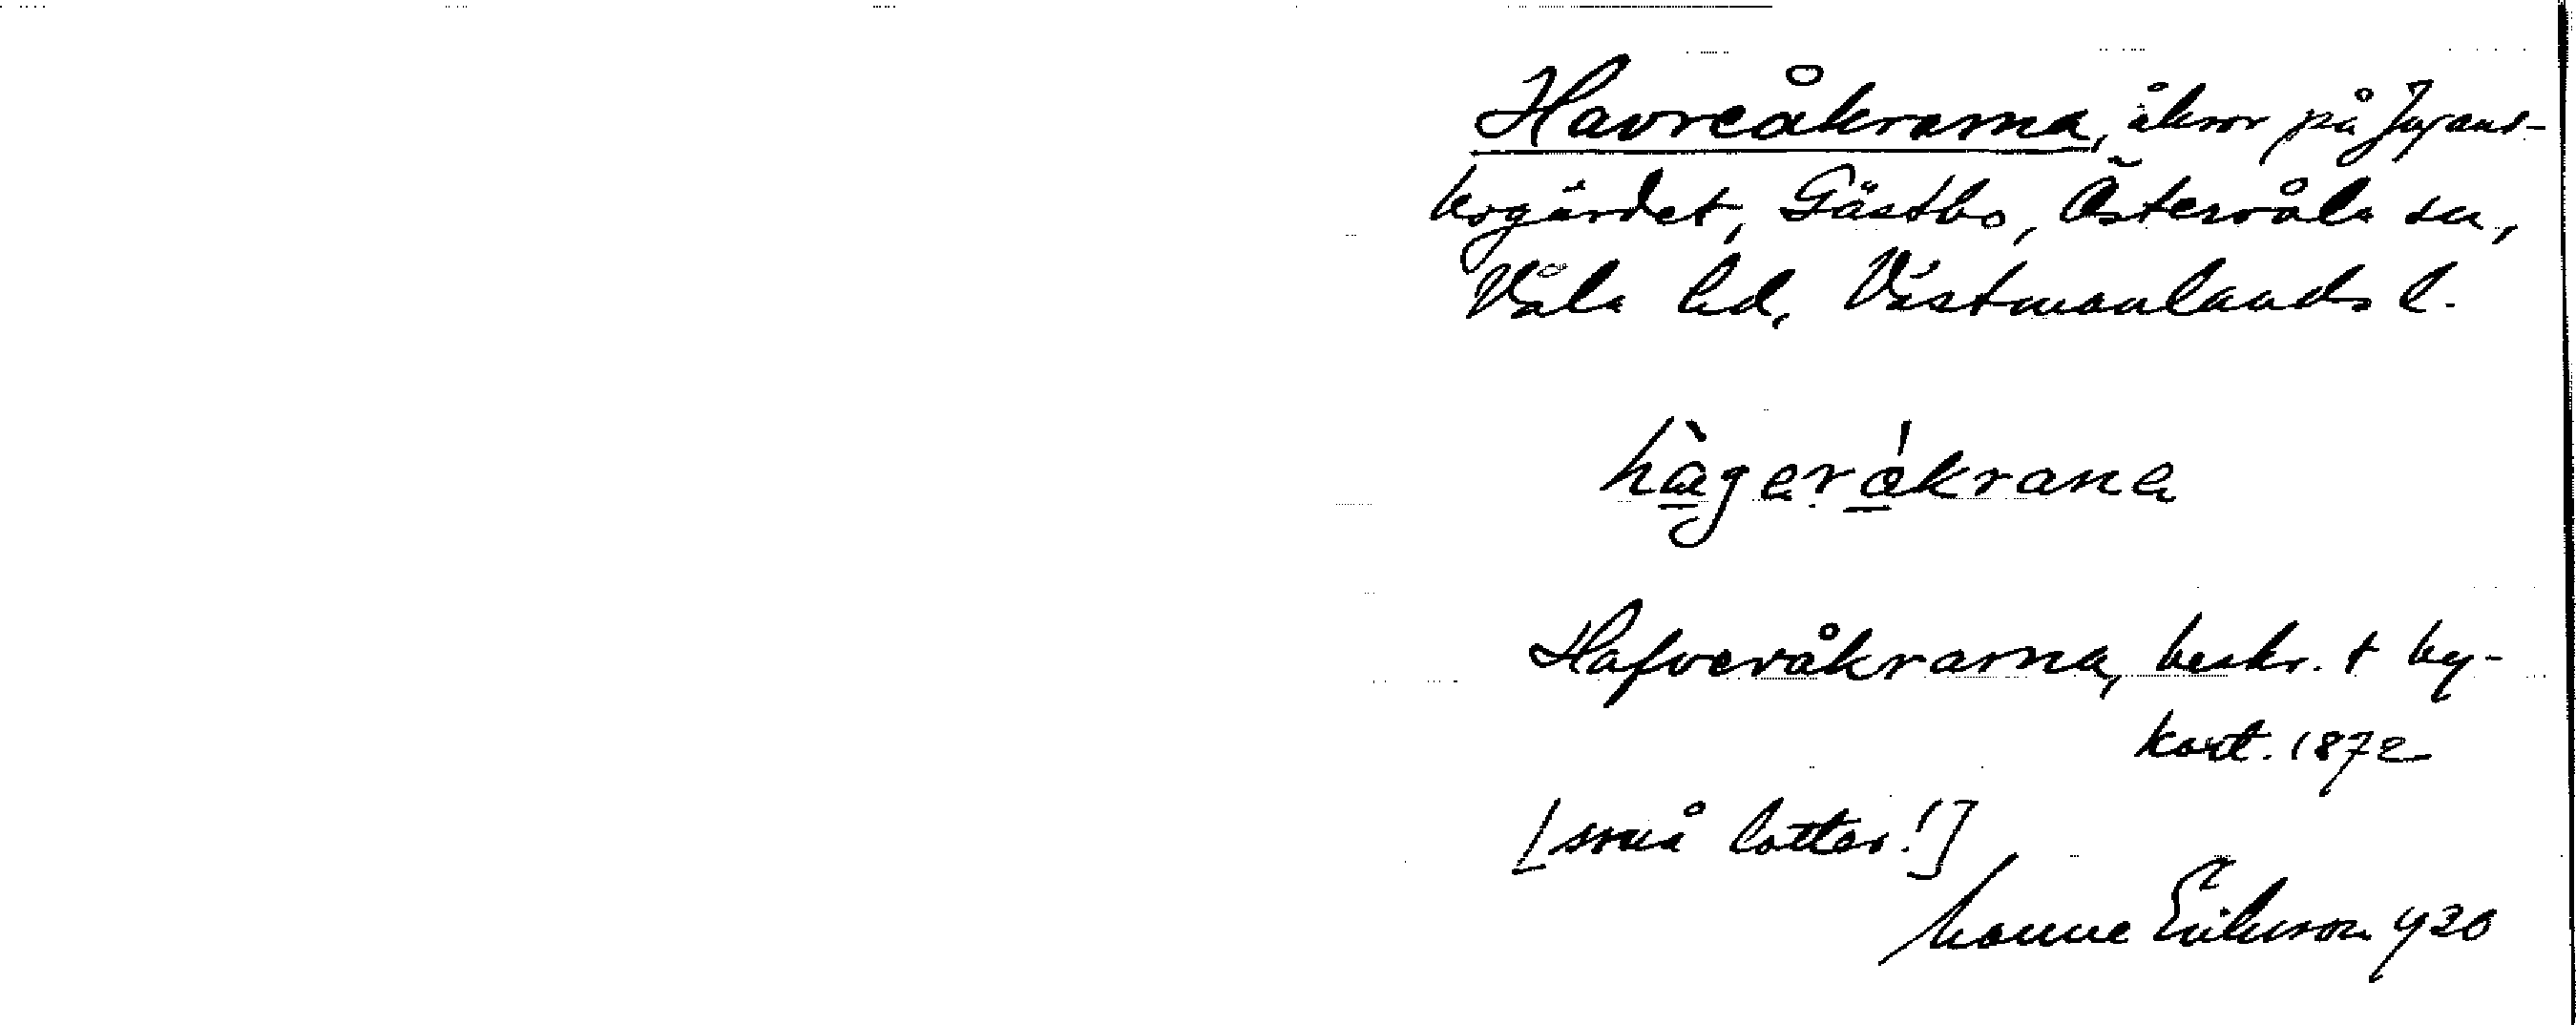 Havreåkrarna, åkrar på
bogärdet, Gästbo, Östervåla sn,
Våla hd, Västmanlands l.
hàgeråkrana
Hafveråkrarna, beskr. t by-
kart. 1872
[små lotter!]
Manne Eriksson 1930